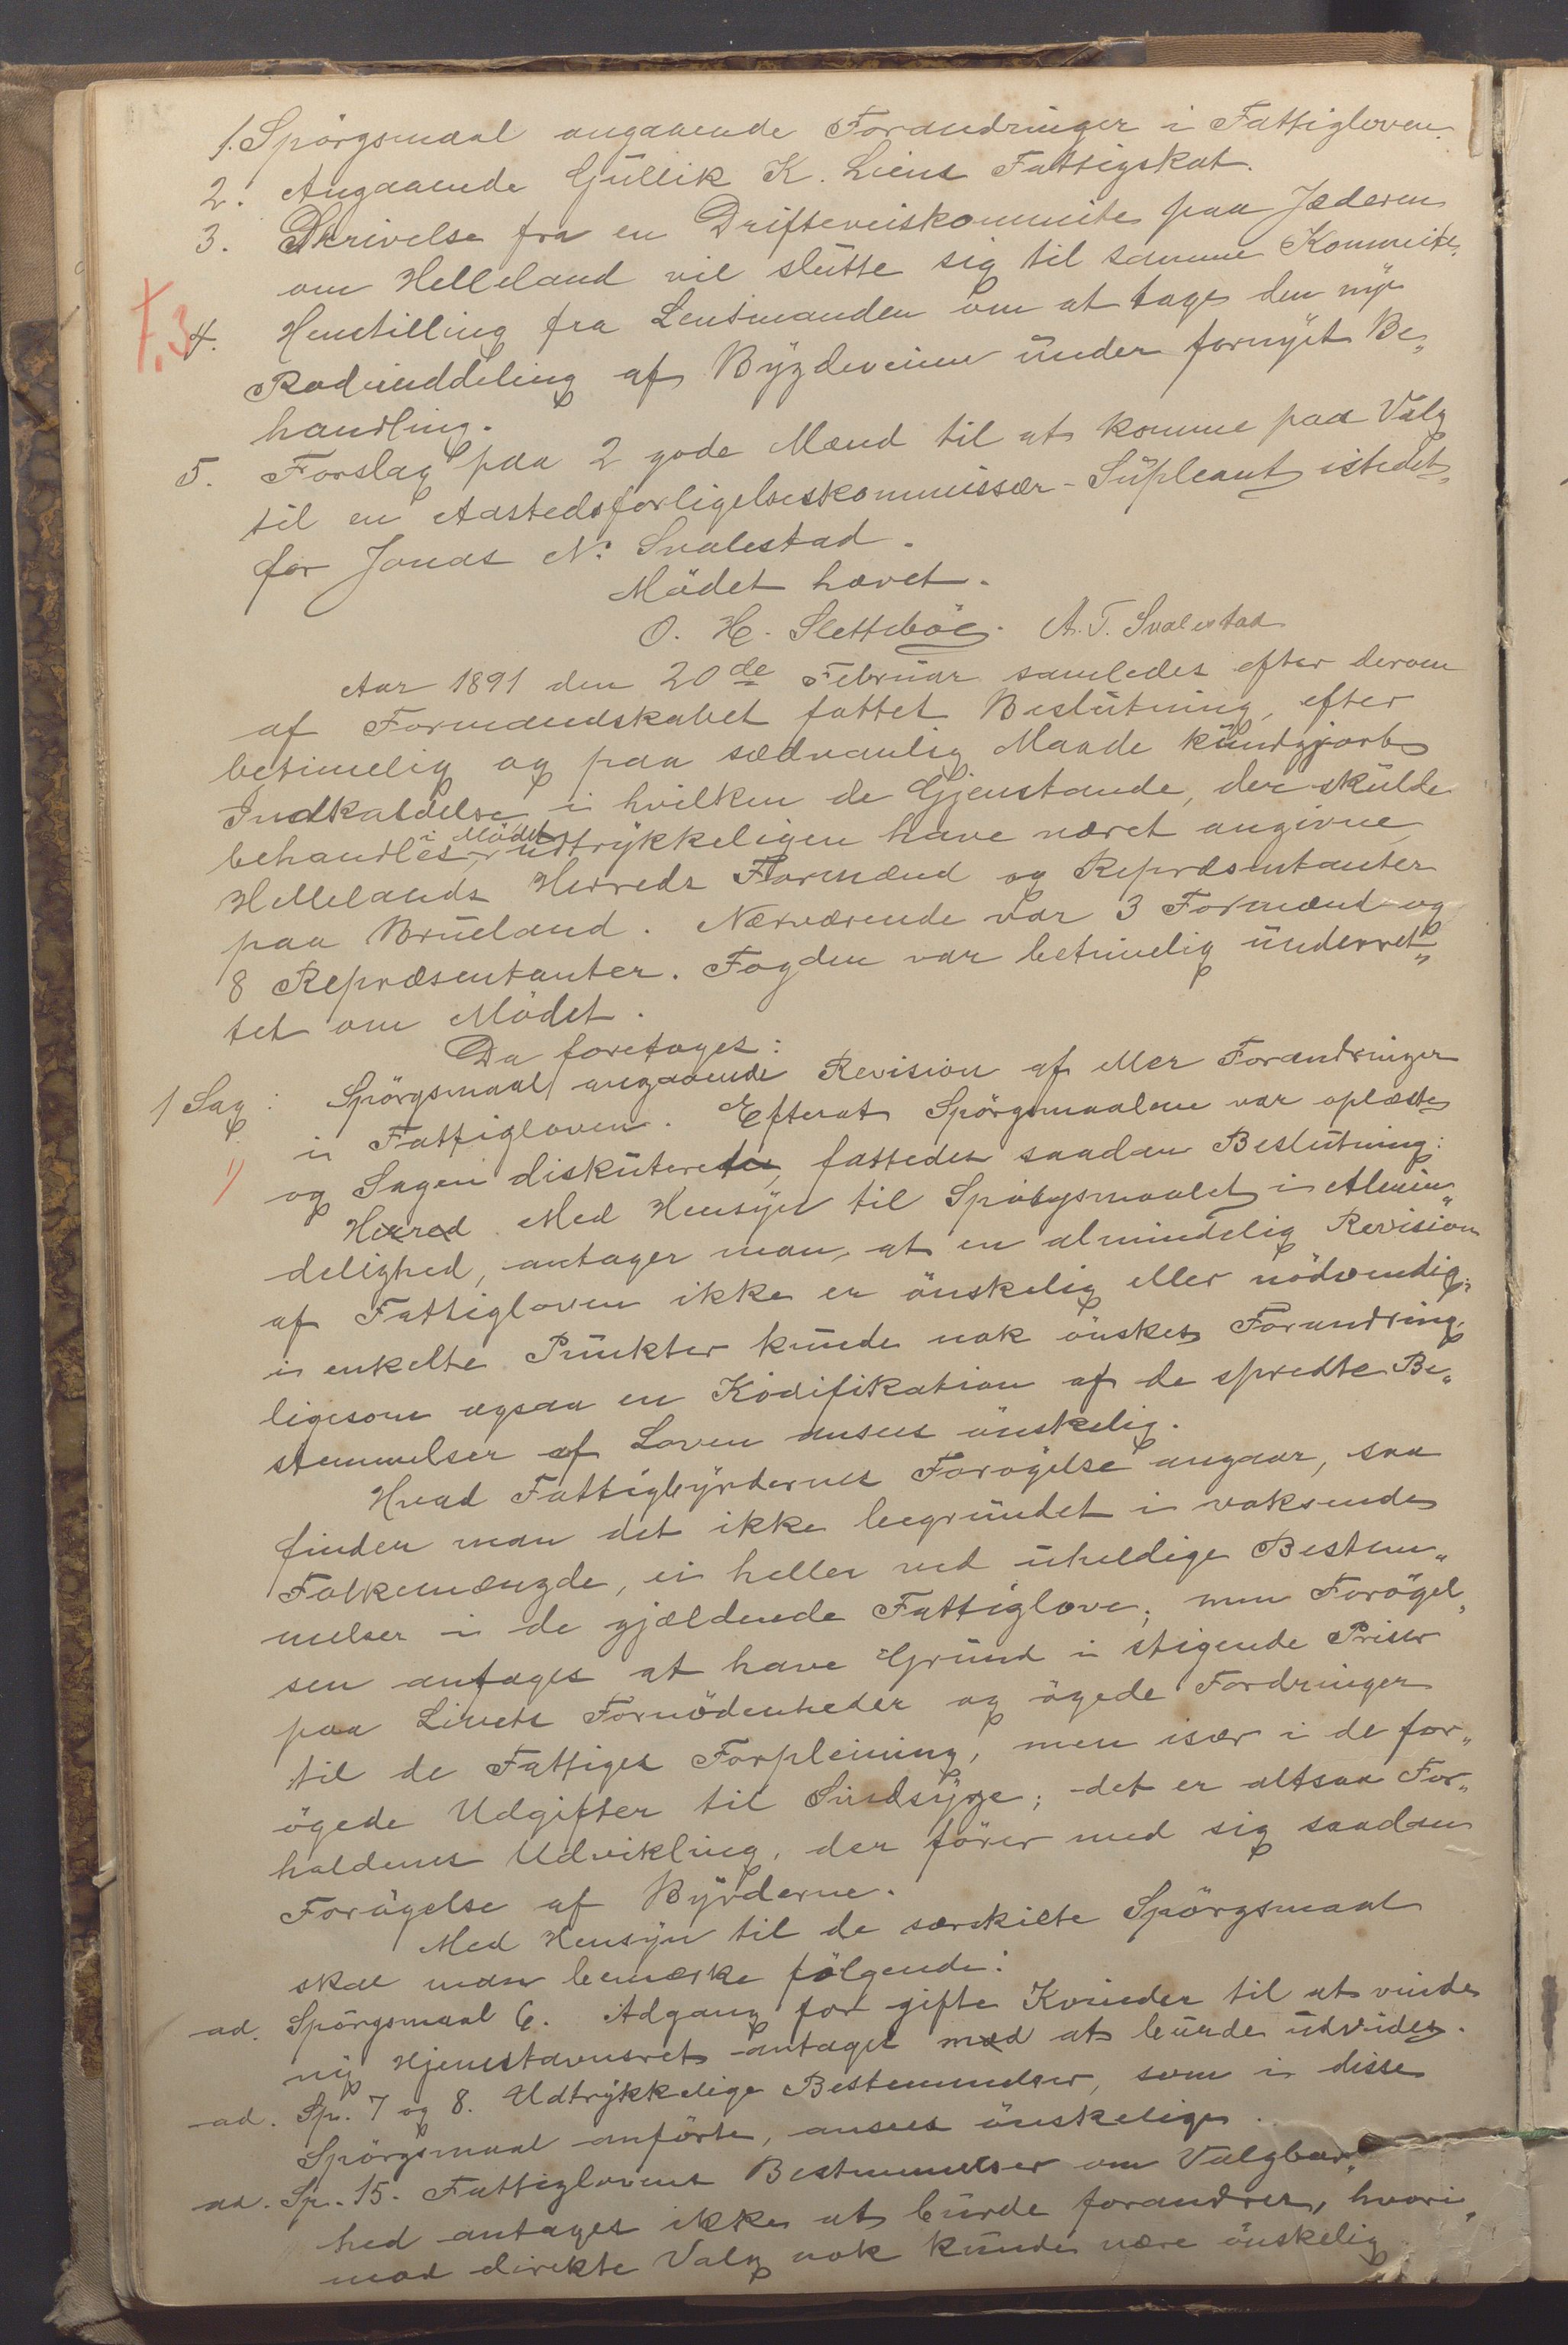 1. Spörgsmaal angaaende Forandringer i Fattigloven.
2. Angaaende Gullik K. Liens Fattigskat.
3. Skrivelse fra en Drifteveiskommite paa Jæderen
om Helleland vil slutte sig til samme Kommite.
4. Henstilling fra Lensmanden om at tage den nye
Rodeinddeling af Bygdeveiene under fornyet Be„
handling.
5. Forslag paa 2 gode Mænd til at komme paa Valg
til en Aastedsforligelseskommissær-Supleant istedet„
for Jonas N. Svalestad.
Mödet hævet.
O. H. Sletteböe. A. T. Svalestad
Aar 1891 den 20de Februar samledes efter derom
af Formandskabet fattet Beslutning, efter
betimelig og paa sædvanlig Maade kundgjort
Indkaldelse i hvilken de Gjenstande, der skulde
behandles i Mödet udtrykkeligen have været angivne,
Hellelands Herreds Formænd og Repræsentanter
paa Brueland. Nærværende var 3 Formænd og
8 Repræsentanter. Fogden var betimelig underret„
tet om Mödet.
Da foretoges:
1 Sag: Spörgsmaal angaaende Revision af eller Forandringer
i Fattigloven. Efterat Spörgsmaalene var oplæste
1) og Sagen diskuteredes, fattedes saadan Beslutning:
Herred Med Hensyn til Spörgsmaalet i Almin„
delighed, antager man, at en almindelig Revision
af Fattigloven ikke er önskelig eller nödvendig;
i enkelte Punkter kunde nok önskes Forandring,
ligesom ogsaa en Kodifikation af de spredte Be„
stemmelser af Loven ansees önskelig.
Hvad Fattigbyrdernes Forögelse angaar, saa
finder man det ikke begrundet i voksende
Folkemængde, ei heller ved uheldige Bestem„
melser i de gjældende Fattiglove; men Forögel„
sen antages at have Grund i stigende Priser
paa Livets Fornödenheder og ögede Fordringer
til de Fattiges Forpleining, men især i de for„
ögede Udgifter til Sindsyge; det er altsaa For„
holdenes Udvikling, der förer med sig saadan
Forögelse af Byrderne.
Med Hensyn til de særskilte Spörgsmaal
skal man bemærke fölgende:
ad. Spörgsmaal 6. Adgang for gifte Kvinder til at vinde
ny Hjemstavnsret antages med at burde udvides.
ad. Sp. 7 og 8. Udtrykkelige Bestemmelser, som i disse
Spörgsmaal anförte, ansees önskelige.
ad. Sp. 15. Fattiglovens Bestemmelser om Valgbar„
hed antages ikke at burde forandres, hvori„
mod direkte Valg nok kunde være önskelig
F. 3